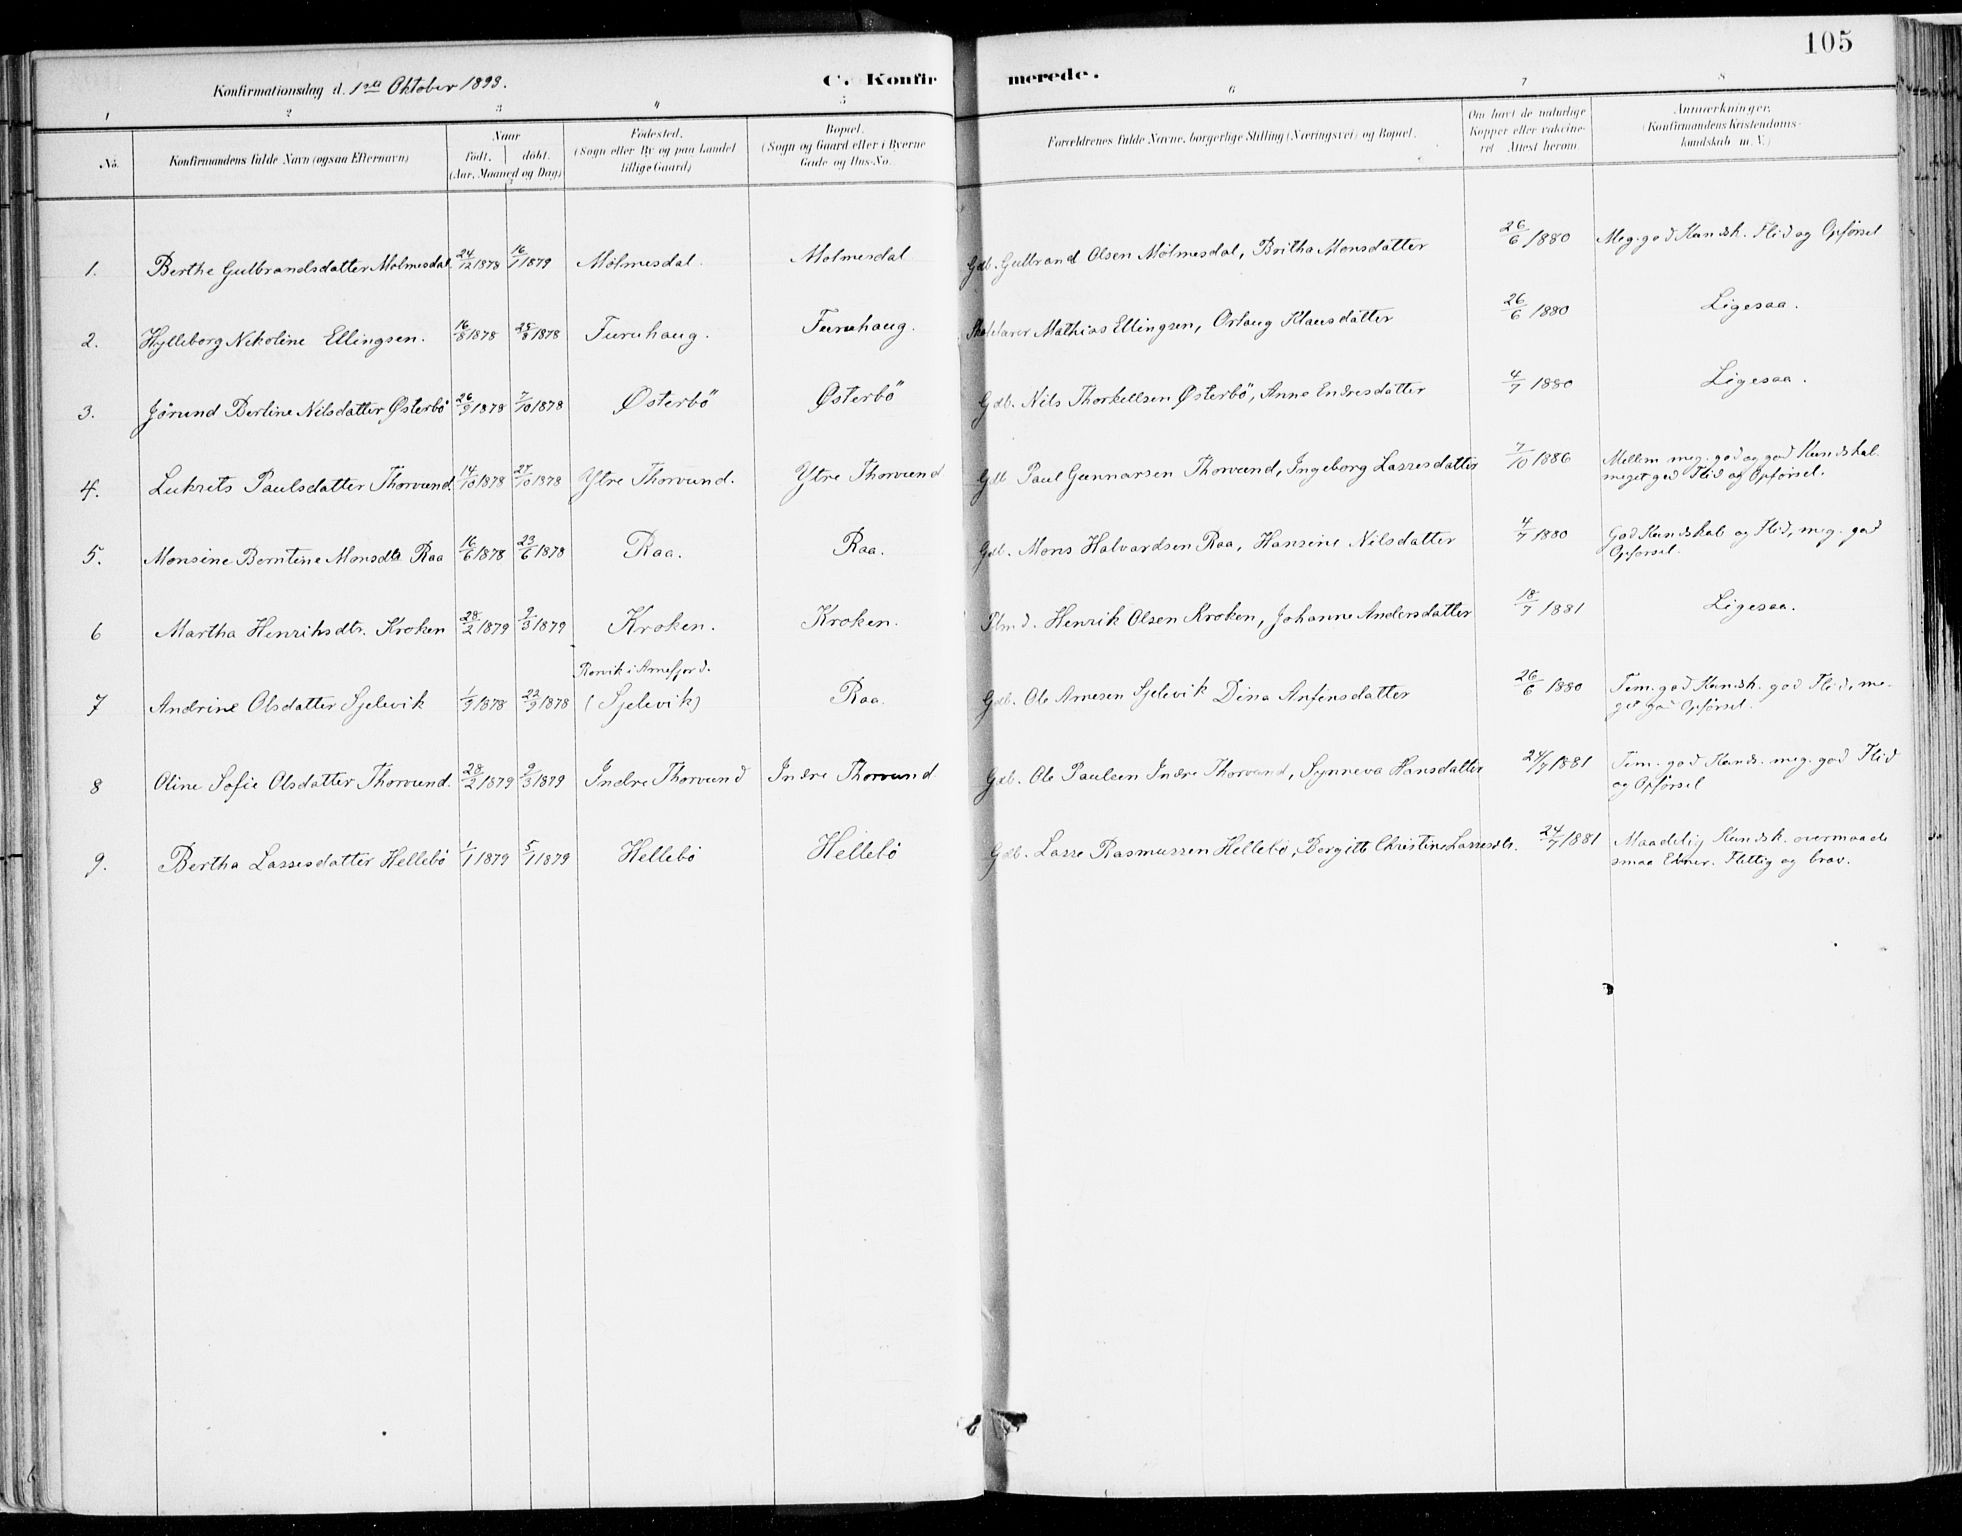 105
Konfirmationsdag d. 1ste Oktober 1893.
C. Konfirmerede.
1 2 3 4 5 6 7 8
No.
Konfirmandens fulde Navn (ogsaa Efternavn)
Naar
født. døbt.
(Aar, Maaned og Dag)
Fødested.
(Sogn eller By og paa Landet
tillige Gaard)
Bopæl.
(Sogn og Gaard eller i Byerne
Gade og Hus-No.
Forældrenes fulde Navne, borgerlige Stilling (Næringsvei) og Bopæl.
Om havt de naturlige
Kopper eller vakcine-
ret Attest herom.
Anmærkninger.
(Konfirmandens Kristendoms-
kundskab m. V.)
1. Berthe Gulbrandsdatter Molmesdal 24/12 1878 16/1 1879 Mölmesdal. Molmesdal Gdb. Gulbrand Olsen Mölmesdal, Britha Monsdatter 26/6 1880 Meg. god Kundsk. Flid og Opförsel
2. Hylleborg Nikoline Ellingsen. 16/8 1878 25/8 1878 Furuhaug. Furuhaug. Mathias Ellingsen, Orlaug Klausdatter 26/6 1880 Ligesaa.
3. Jörund Berline Nilsdatter Østerbö 26/9 1878 7/10 1878 Østerbö Østerbö Gdb. Nils Thorkellsen Østerbö, Anne Endresdatter 4/7 1880 Ligesaa.
4. Lukrits Paulsdatter Thorvund. 14/10 1878 27/10 1878 Ytre Thorvund. Ytre Thorvund Gdb Paul Gunnarsen Thorvund, Ingeborg Lassesdatter 7/10 1886 Mellem meg. god og god Kundskab.
meget god Flid og Opförsel.
5. Monsine Berntine Monsdtr Raa 16/6 1878 23/6 1878 Raa. Raa. Gdb. Mons Halvardsen Raa, Hansine Nilsdatter 4/7 1880 God Kundskab og Flid, meg. god
Opförsel.
6 Martha Henriksdtr. Kroken 28/2 1879 9/3 1879 Kroken. Kroken. Plmd. Henrik Olsen Kroken, Johanne Andersdatter 18/7 1881 Ligesaa.
Rörvik i Arnefjord.
7 Andrine Olsdatter Sjelevik 1/9 1878 22/9 1878 (Sjelevik) Raa. Gdb. Ole Arnesen Sjelevik Dina Anfinsdatter 26/6 1880 Tem. god Kundsk. god Flid, me-
get god Opförsel.
8 Oline Sofie Olsdatter Thorvund. 28/2 1879 9/3 1879 Indre Thorvund Indre Thorvund Gdb. Ole Paulsen Indre Thorvund, Synneva Hansdatter 24/7 1881 Tem. god Kunds. meg. god Flid
og Opförsel
9. Bertha Lassesdatter Hellebö 1/1 1879 5/1 1879 Hellebö Hellebö Gdb. Lasse Rasmussen Hellebö, Bergitte Christine Lassesdtr. 24/7 1881 Maadelig Kundsk. overmaade
smaa Evner. Flittig og brav.